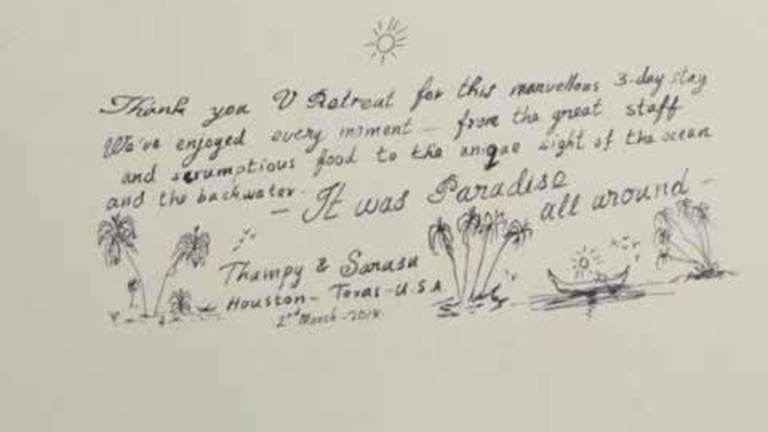 Thank you V Retreat for this marvellous 3-day stay
We've enjoyed every moment - from the great staff
and scrumptious food to the unique sight of the ocean
and the backwater.
- It was Paradise
all around -
Thampy & Sarasu
Houston - Texas - U.S.A
2nd March - 2018